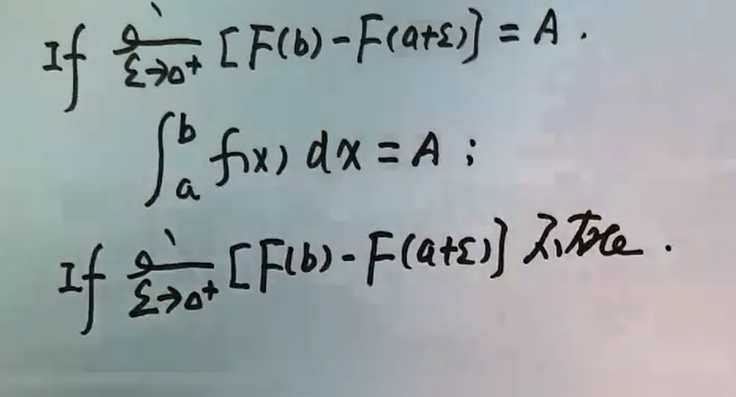 If lim_{ε→0⁺} [F(b)-F(a+ε)] = A.
∫_a^b f(x) dx = A;
If lim_{ε→0⁺} [F(b)-F(a+ε)] 不存在.